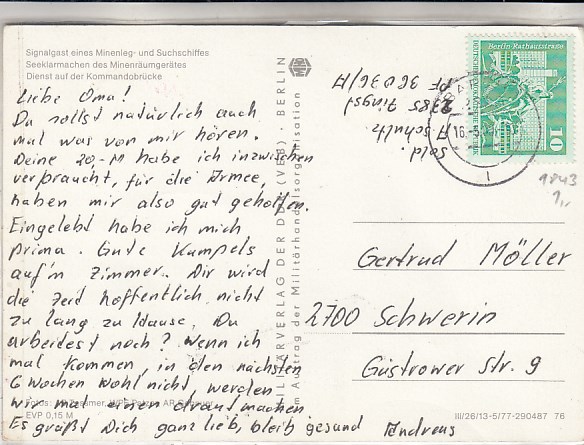 Signalgast eines Minenleg- und Suchschiffes
Seeklarmachen des Minenräumgerätes
Dienst auf der Kommandobrücke
Liebe Oma!
Du sollst natürlich auch
mal was von mir hören.
Deine 20,-M habe ich inzwischen
verpraucht, für die Armee,
haben mir also gut geholfen.
Eingelebt habe ich mich
prima. Gute Kumpels
auf'm Zimmer. Dir wird
die Zeit hoffentlich nicht
zu lang zu Hause. Du
arbeidest noch? Wenn ich
mal kommen, in den nächsten
6 Wochen wohl nicht, werden
wir mal einen draufmachen
Es größt Dich ganz lieb, bleib gesund Andreas
EVP 0,15 M
MILITÄRVERLAG DER DDR (VEB) · BERLIN
im Auftrag der Militärhandelsorganisation
Sold.
A Schulz
2385 Zingst
PF 36036/A
Berlin-Rathausstraße
10
16.-5.
1843
1,-
Gertrud Möller
2700 Schwerin
Güstrower Str. 9
III/26/13-5/77-290487 76